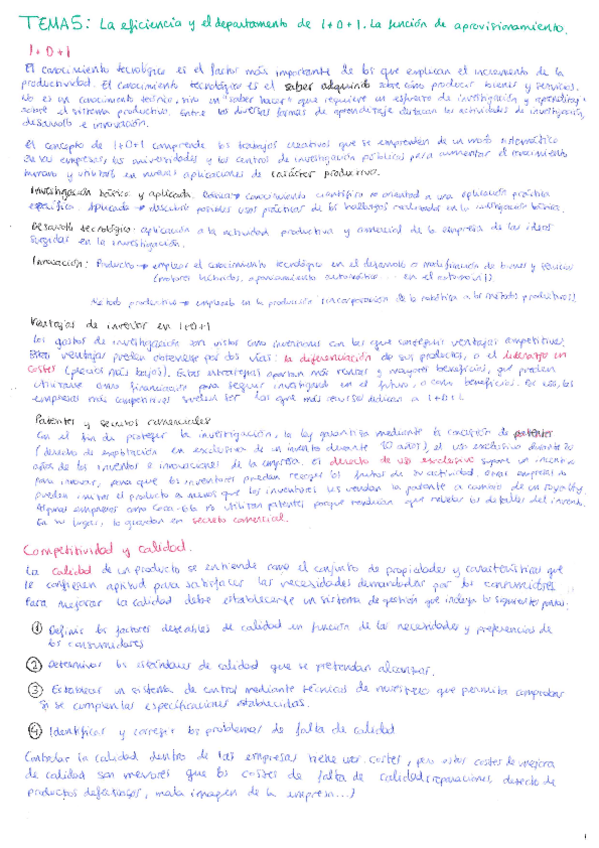 TEMA 5: La eficiencia y el departamento de I+D+I. La función de aprovisionamiento.
I+D+I
El conocimiento tecnológico es el factor más importante de los que explican el incremento de la
productividad. El conocimiento tecnológico es el saber adquirido sobre cómo producir bienes y servicios.
No es un conocimiento teórico, sino un "saber hacer" que requiere un esfuerzo de investigación y aprendizaje
sobre el sistema productivo. Entre las diversas formas de aprendizaje destacan las actividades de investigación,
desarrollo e innovación.
El concepto de I+D+I comprende los trabajos creativos que se emprenden de un modo sistemático
en las empresas, las universidades y los centros de investigación públicos para aumentar el conocimiento
humano y utilizarlo en nuevas aplicaciones de carácter productivo.
Investigación básica y aplicada. Básica → conocimiento científico no orientado a una aplicación práctica
específica. Aplicada → descubrir posibles usos prácticos de los hallazgos realizados en la investigación básica.
Desarrollo tecnológico: aplicación a la actividad productiva y comercial de la empresa de las ideas
surgidas en la investigación.
Innovación: Producto → emplear el conocimiento tecnológico en el desarrollo o modificación de bienes y servicios
(motores híbridos, aparcamiento automático... en el automóvil)
Método productivo → emplearlo en la producción (incorporación de la robótica a los métodos productivos)
Ventajas de invertir en I+D+I
Los gastos de investigación son vistos como inversiones con las que conseguir ventajas competitivas.
Estas ventajas pueden obtenerse por dos vías: la diferenciación de sus productos, o el liderazgo en
costes (precios más bajos). Estas estrategias aportan más ventas y mayores beneficios, que pueden
utilizarse como financiación para seguir investigando en el futuro, o como beneficios. Por eso, las
empresas más competitivas suelen ser las que más recursos dedican a I+D+I.
Patentes y secretos comerciales
Con el fin de proteger la investigación, la ley garantiza mediante la concesión de patentes
(derecho de explotación en exclusiva de un invento durante 20 años), el uso exclusivo durante 20
años de los inventos e innovaciones de la empresa. El derecho de uso exclusivo supone un incentivo
para innovar, para que los inventores puedan recoger los frutos de su actividad. Otras empresas no
pueden imitar el producto a menos que los inventores les vendan la patente a cambio de un royalty.
Algunas empresas como Coca-Cola no utilizan patentes porque tendrían que revelar los detalles del invento.
En su lugar, lo guardan en secreto comercial.
Competitividad y calidad.
La calidad de un producto se entiende como el conjunto de propiedades y características que
le confieren aptitud para satisfacer las necesidades demandadas por los consumidores
Para mejorar la calidad debe establecerse un sistema de gestión que incluya los siguientes puntos:
① Definir los factores deseables de calidad en función de las necesidades y preferencias de
los consumidores
② Determinar los estándares de calidad que se pretendan alcanzar.
③ Establecer un sistema de control mediante técnicas de muestreo que permita comprobar
si se cumplen las especificaciones establecidas.
④ Identificar y corregir los problemas de falta de calidad
Controlar la calidad dentro de las empresas tiene sus costes, pero estos costes de mejora
de calidad son menores que los costes de falta de calidad (reparaciones, defecto de
productos defectuosos, mala imagen de la empresa...)
1